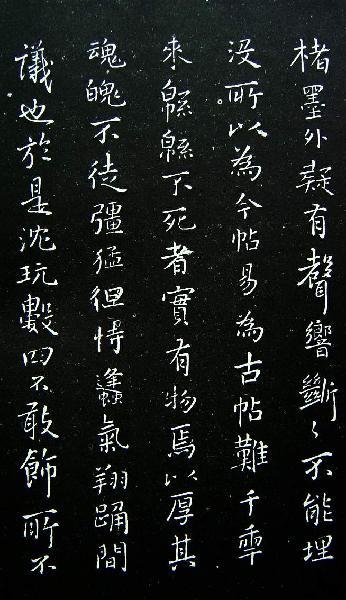 楮墨外疑有聲響斷〻不能埋
沒所以為今帖易為古帖難千秊
來緜緜不死者實有物焉以厚其
魂魄不徒彊猛但恃麤氣翔踊間
議也於是沈玩數四不敢飾所不